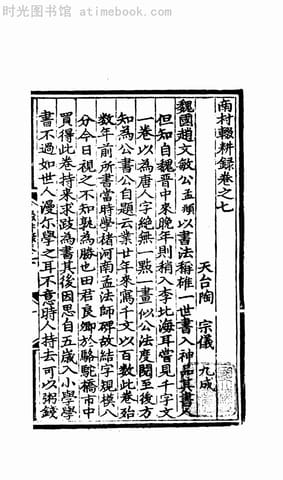 时光图书馆—atimebook.com
南村輟耕錄卷之七
天台陶 宗儀 九成
魏國趙文敏公孟頫以書法稱雄一世書入神品其書人
但知自魏晉中來晚年則稍入李北海耳嘗見千字文
一卷以為唐人字絕無一點一畫似公法度閱至後方
知為公書公自題云業廿年來寫千文以百數此卷殆
数年前所書當時學褚河南孟法師碑故結字規模八
分今日視之不知孰為勝也田君良卿於駱駝橋市中
買得此卷持來求跋為書其後因思自五歲入小學學
書不過如世人漫尓學之耳不意時人持去可以粥錢